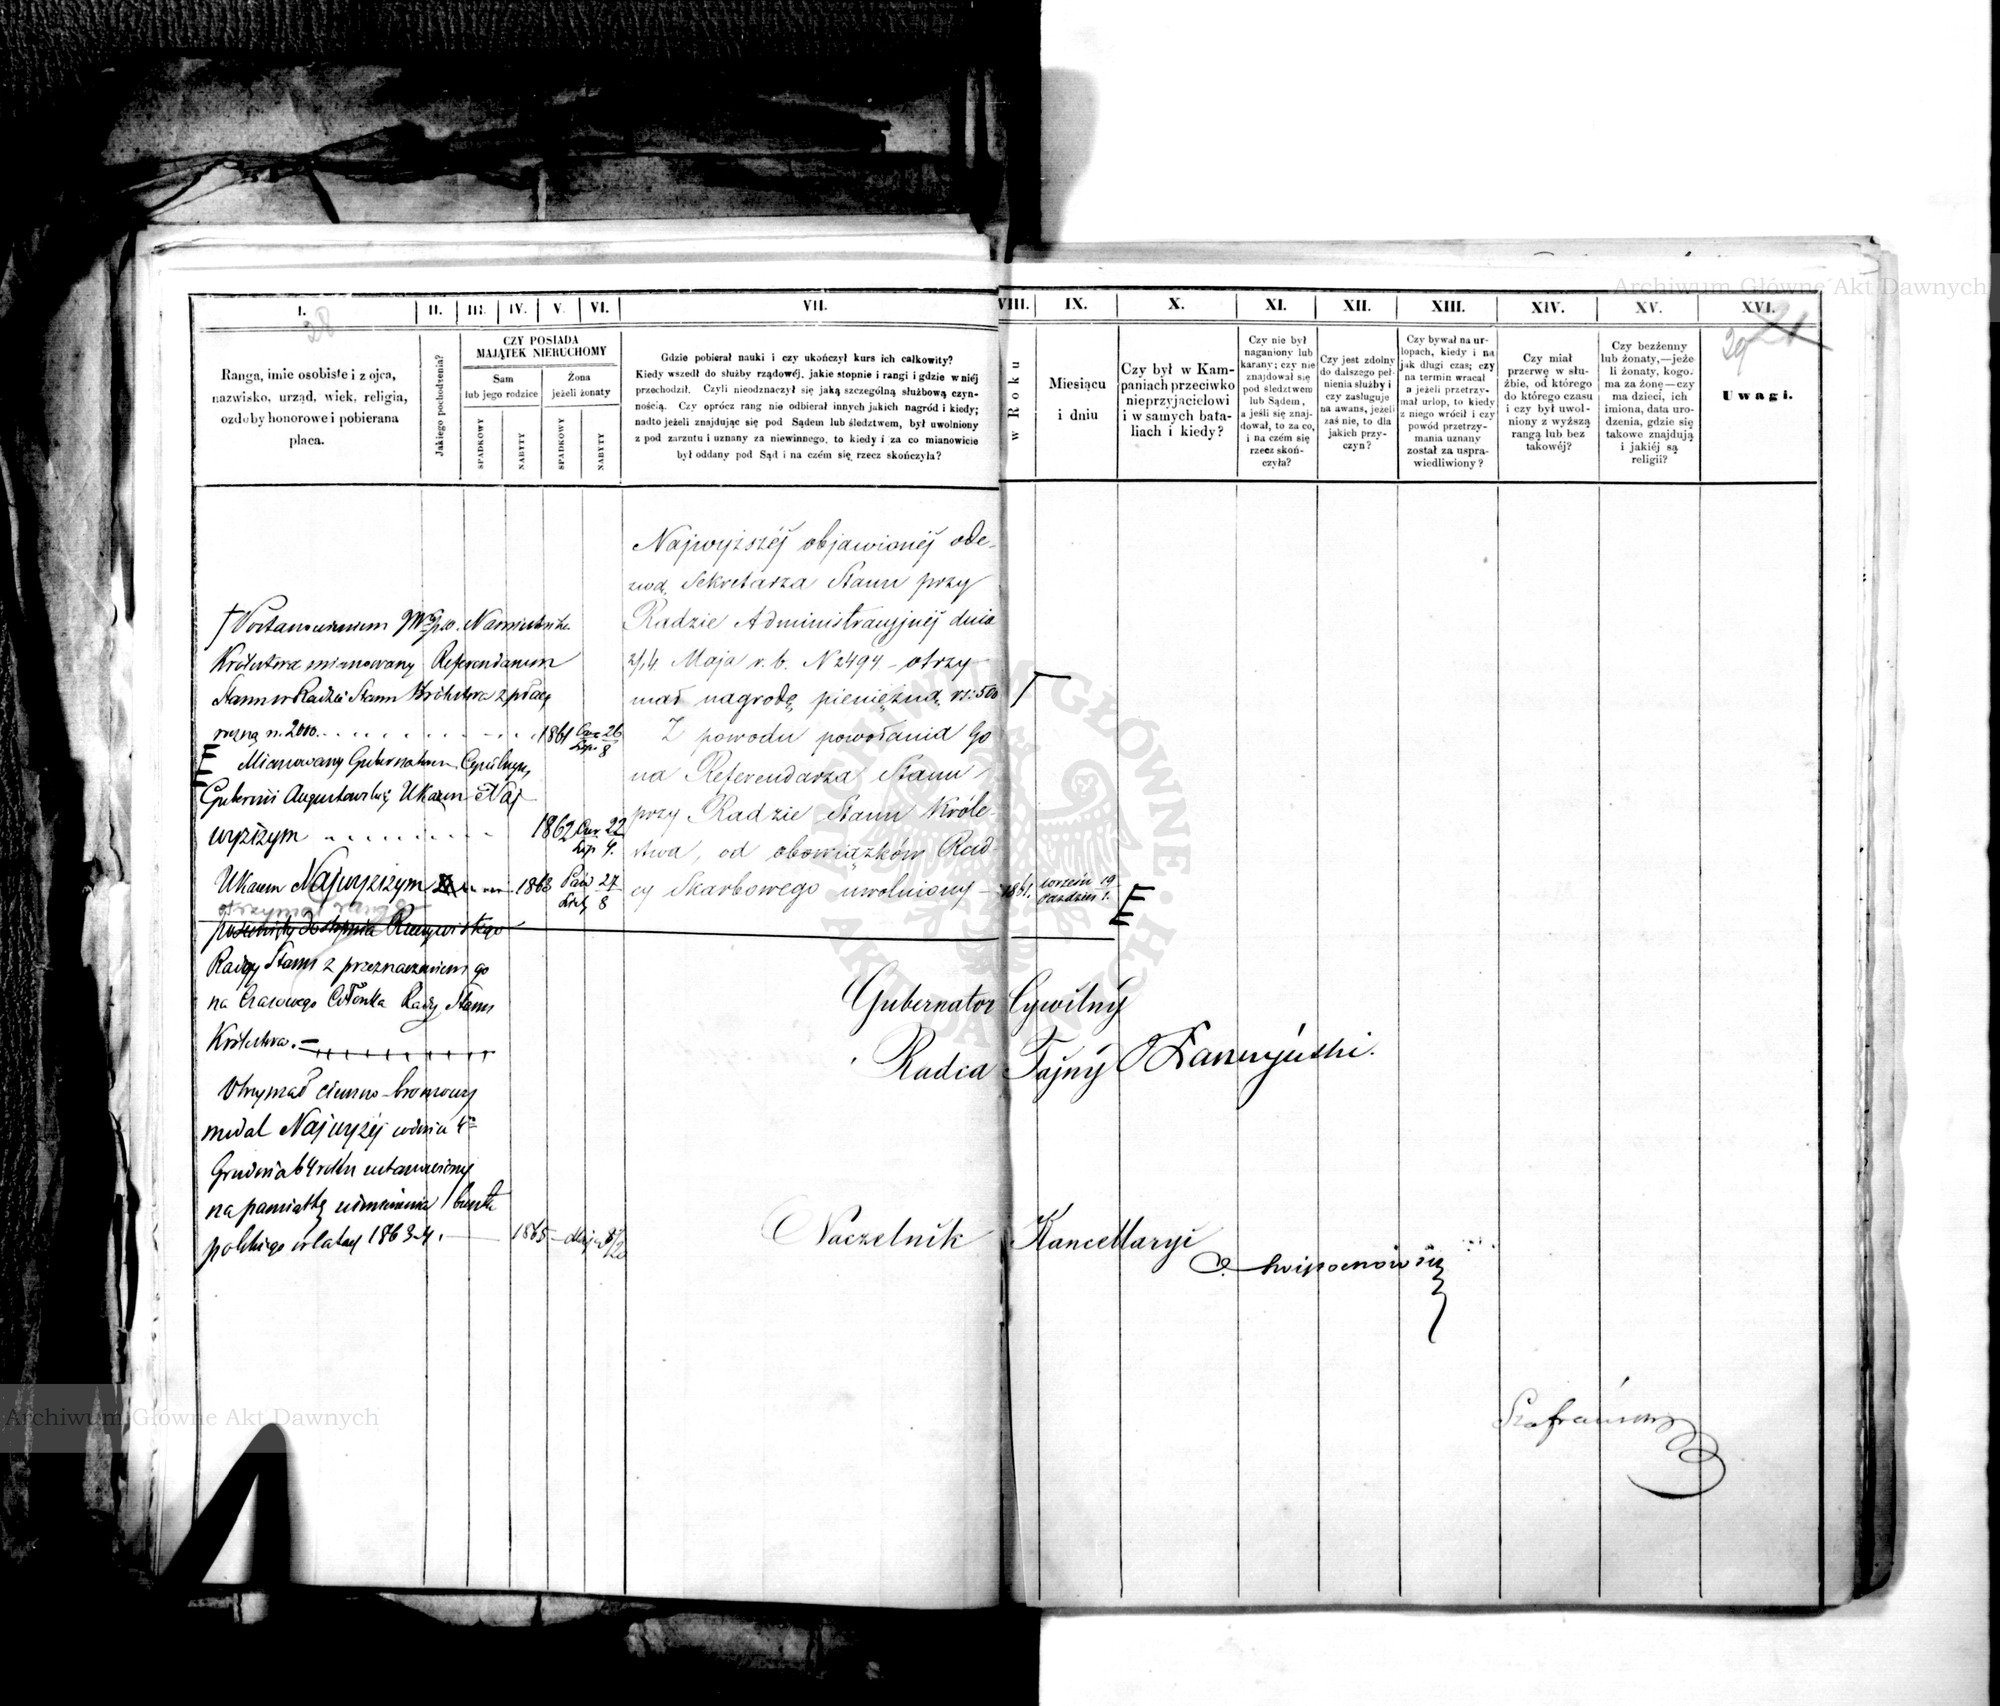 Archiwum Główne Akt Dawnych
I.
II.
III.
IV.
V.
VI.
VII.
VIII.
IX.
X.
XI.
XII.
XIII.
XIV.
XV.
XVI.
38
39
Ranga, imie osobiste i z ojca,
nazwisko, urząd, wiek, religia,
ozdoby honorowe i pobierana
płaca.
Jakiego pochodzenia?
CZY POSIADA
MAJĄTEK NIERUCHOMY
Sam
lub jego rodzice
Żona
jeżeli żonaty
SPADKOWY
NABYTY
SPADKOWY
NABYTY
Gdzie pobierał nauki i czy ukończył kurs ich całkowity?
Kiedy wszedł do służby rządowéj, jakie stopnie i rangi i gdzie w niéj
przechodził. Czyli nieodznaczył się jaką szczególną służbową czyn-
nością. Czy oprócz rang nie odbierał innych jakich nagród i kiedy;
nadto jeżeli znajdując się pod Sądem lub śledztwem, był uwolniony
z pod zarzutu i uznany za niewinnego, to kiedy i za co mianowicie
był oddany pod Sąd i na czém się rzecz skończyła?
w Roku
Miesiącu
i dniu
Czy był w Kam-
paniach przeciwko
nieprzyjacielowi
i w samych bata-
liach i kiedy?
Czy nie był
naganiony lub
karany; czy nie
znajdował się
pod śledztwem
lub Sądem,
a jeśli się znaj-
dował, to za co,
i na czém się
rzecz skoń-
czyła?
Czy jest zdolny
do dalszego peł-
nienia służby i
czy zasługuje
na awans, jeżeli
zaś nie, to dla
jakich przy-
czyn?
Czy bywał na ur-
lopach, kiedy i na
jak długi czas; czy
na termin wracał
a jeżeli przetrzy-
mał urlop, to kiedy
z niego wrócił i czy
powód przetrzy-
mania uznany
został za uspra-
wiedliwiony?
Czy miał
przerwę w słu-
żbie, od którego
do którego czasu
i czy był uwol-
niony z wyższą
rangą lub bez
takowéj?
Czy bezżenny
lub żonaty,—jeże-
li żonaty, kogo
ma za żonę—czy
ma dzieci, ich
imiona, data uro-
dzenia, gdzie się
takowe znajdują
i jakiéj są
religii?
Uwagi.
Najwyższéj objawionéj ode-
zwą Sekretarza Stanu przy
Radzie Administracyjnéj dnia
2/14 Maja r. b. N 2494 – otrzy
mał nagrodę pieniężną rs. 500
Z powodu powołania Go
na Referendarza Stanu
przy Radzie Stanu Króle-
stwa, od obowiązków Rad-
cy Skarbowego uwolniony – 1861. Wrześn 19 Paździer 1.
† Postanowieniem Namiestnika
Królestwa mianowany Referendarzem
Stanu w Radzie Stanu Królestwa z płacą
roczną rs. 2000. 1861 Czer 26 Lip. 8
Mianowany Gubernatorem Cywilnym
Guberni Augustowskiéj Ukazem Naj
wyższym 1862 Czer. 22 Lip 4.
Ukazem Najwyższym 1863 Paź 27 List 8
otrzymał rangę
Rzeczywistego
Radcy Stanu z przeznaczeniem go
na Czasowego Członka Rady Stanu
Królestwa. –
Otrzymał ciemno-bronzowy
medal Najwyżéj w dniu 1
Grudnia 64 roku ustanowiony
na pamiątkę uśmierzenia buntu
polskiego w latach 1863-4. 1865 – Maja 8/20
Gubernator Cywilny
Radca Tajny
Naczelnik Kancellaryi
Archiwum Główne Akt Dawnych
ARCHIWUM GŁÓWNE
AKT DAWNYCH